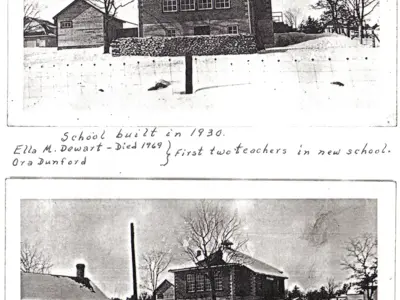 School built in 1930.
Ella M. Dewart - Died 1969 } First two teachers in new school.
Ora Dunford